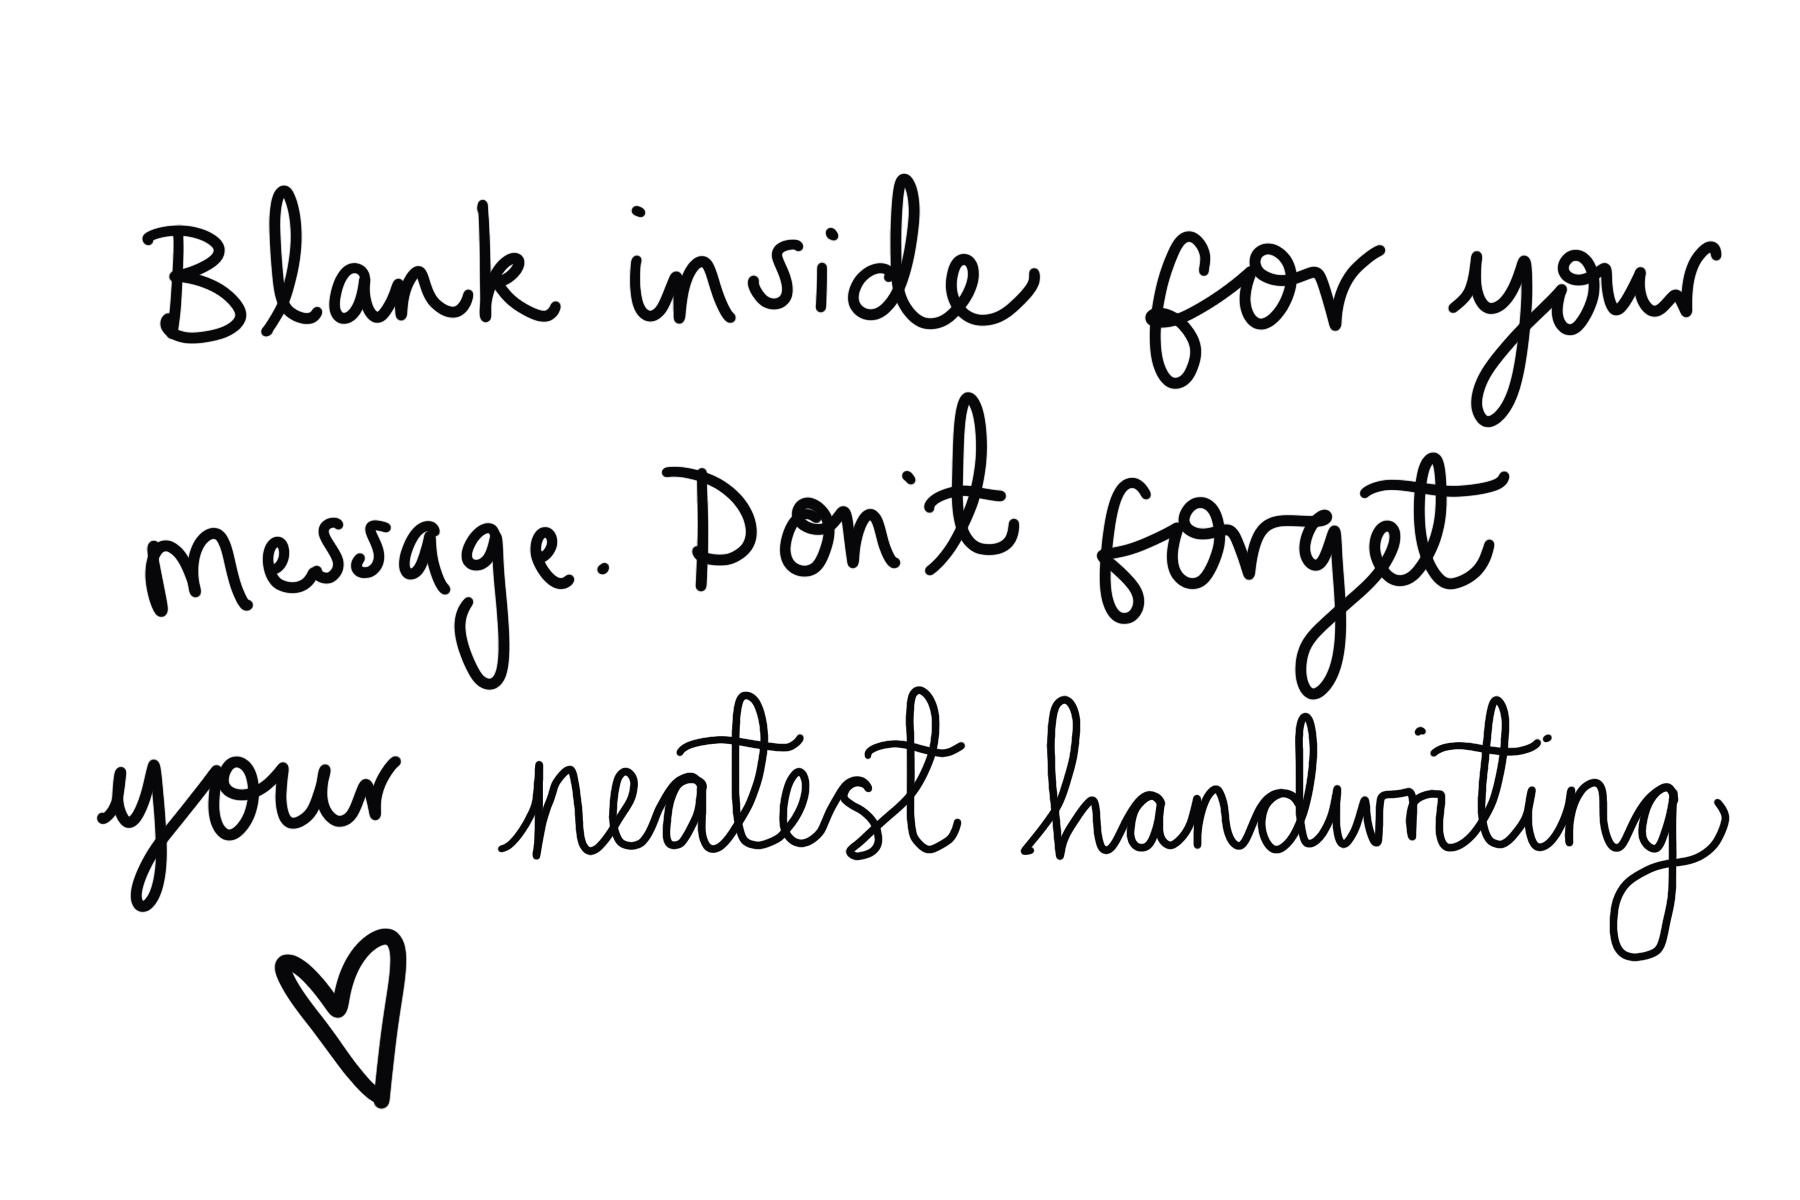 Blank inside for your
message. Don't forget
your neatest handwriting
♡